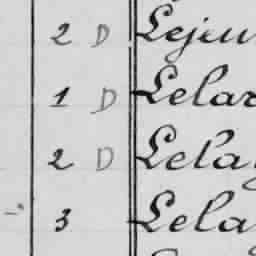 2 D Lejeu
1 D Lelar
2 D Lela
3 Lela